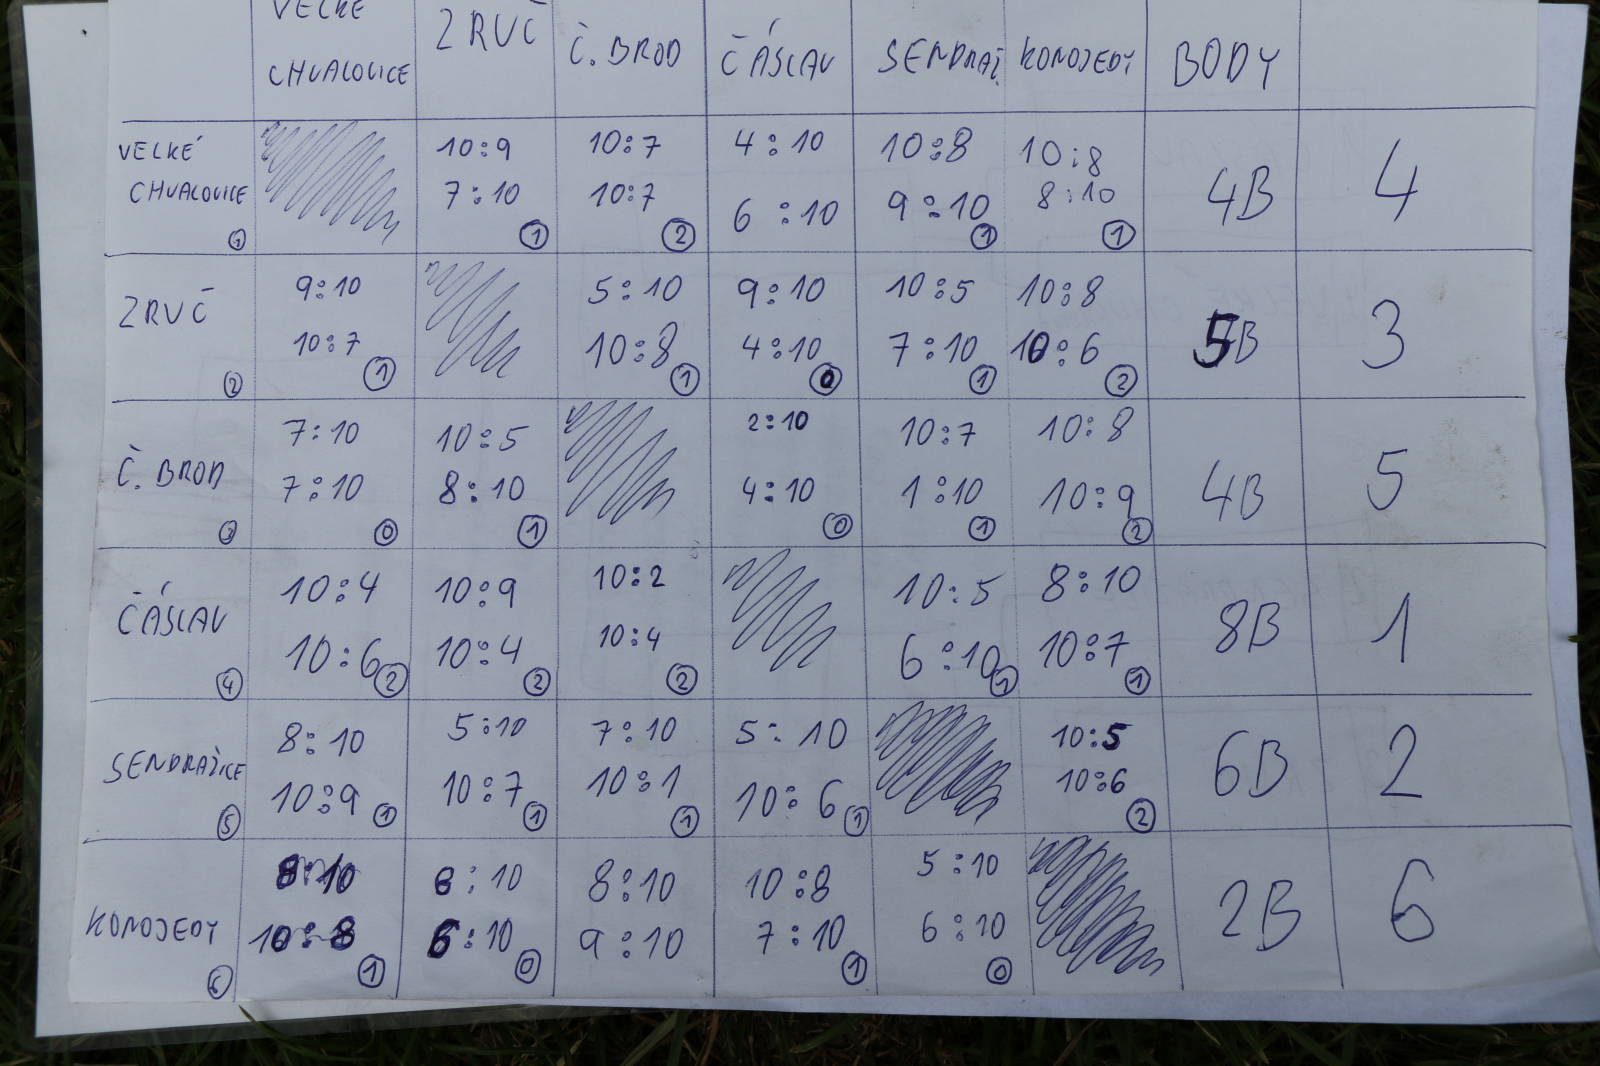 VELKÉ CHVALOVICE ZRUČ Č. BROD ČÁSLAV SENDRAŽ. KONOJEDY BODY
VELKÉ CHVALOVICE 1 10:9 7:10 1 10:7 10:7 2 4:10 6:10 10:8 9:10 1 10:8 8:10 1 4B 4
ZRUČ 2 9:10 10:7 1 5:10 10:8 1 9:10 4:10 0 10:5 7:10 1 10:8 10:6 2 5B 3
Č. BROD 3 7:10 7:10 0 10:5 8:10 1 2:10 4:10 0 10:7 1:10 1 10:8 10:9 2 4B 5
ČÁSLAV 4 10:4 10:6 2 10:9 10:4 2 10:2 10:4 2 10:5 6:10 1 8:10 10:7 1 8B 1
SENDRAŽICE 5 8:10 10:9 1 5:10 10:7 1 7:10 10:1 1 5:10 10:6 1 10:5 10:6 2 6B 2
KONOJEDY 6 8:10 10:8 1 8:10 6:10 0 8:10 9:10 10:8 7:10 1 5:10 6:10 0 2B 6